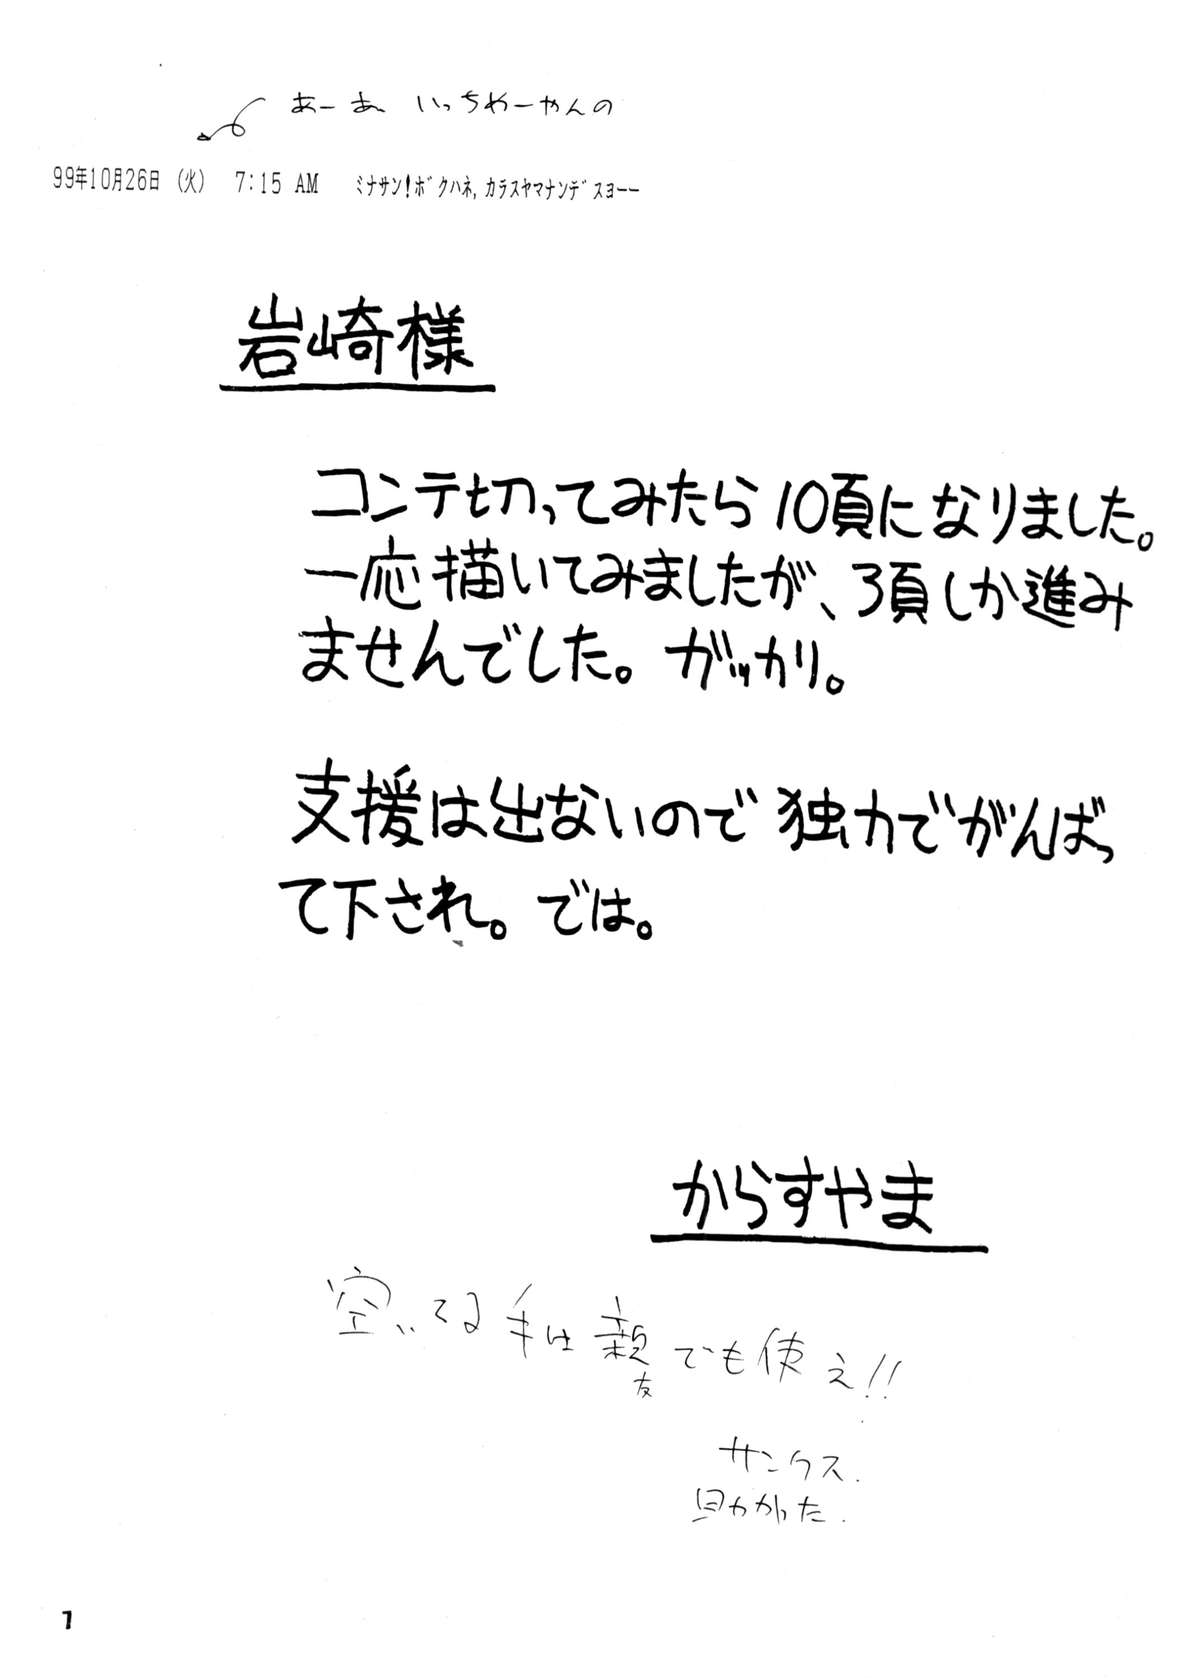 あーあ いっちゃーゃんの
99年10月26日 (火) 7:15 AM ミナサン!ボクハネ,カラスヤマナンデスヨーー
岩崎様
コンテ切ってみたら10頁になりました。
一応描いてみましたが、3頁しか進み
ませんでした。ガッカリ。
支援は出ないので独力でがんばっ
て下され。では。
からすやま
空いてる手は親でも使え!!
友
サンクス.
助かった.
7